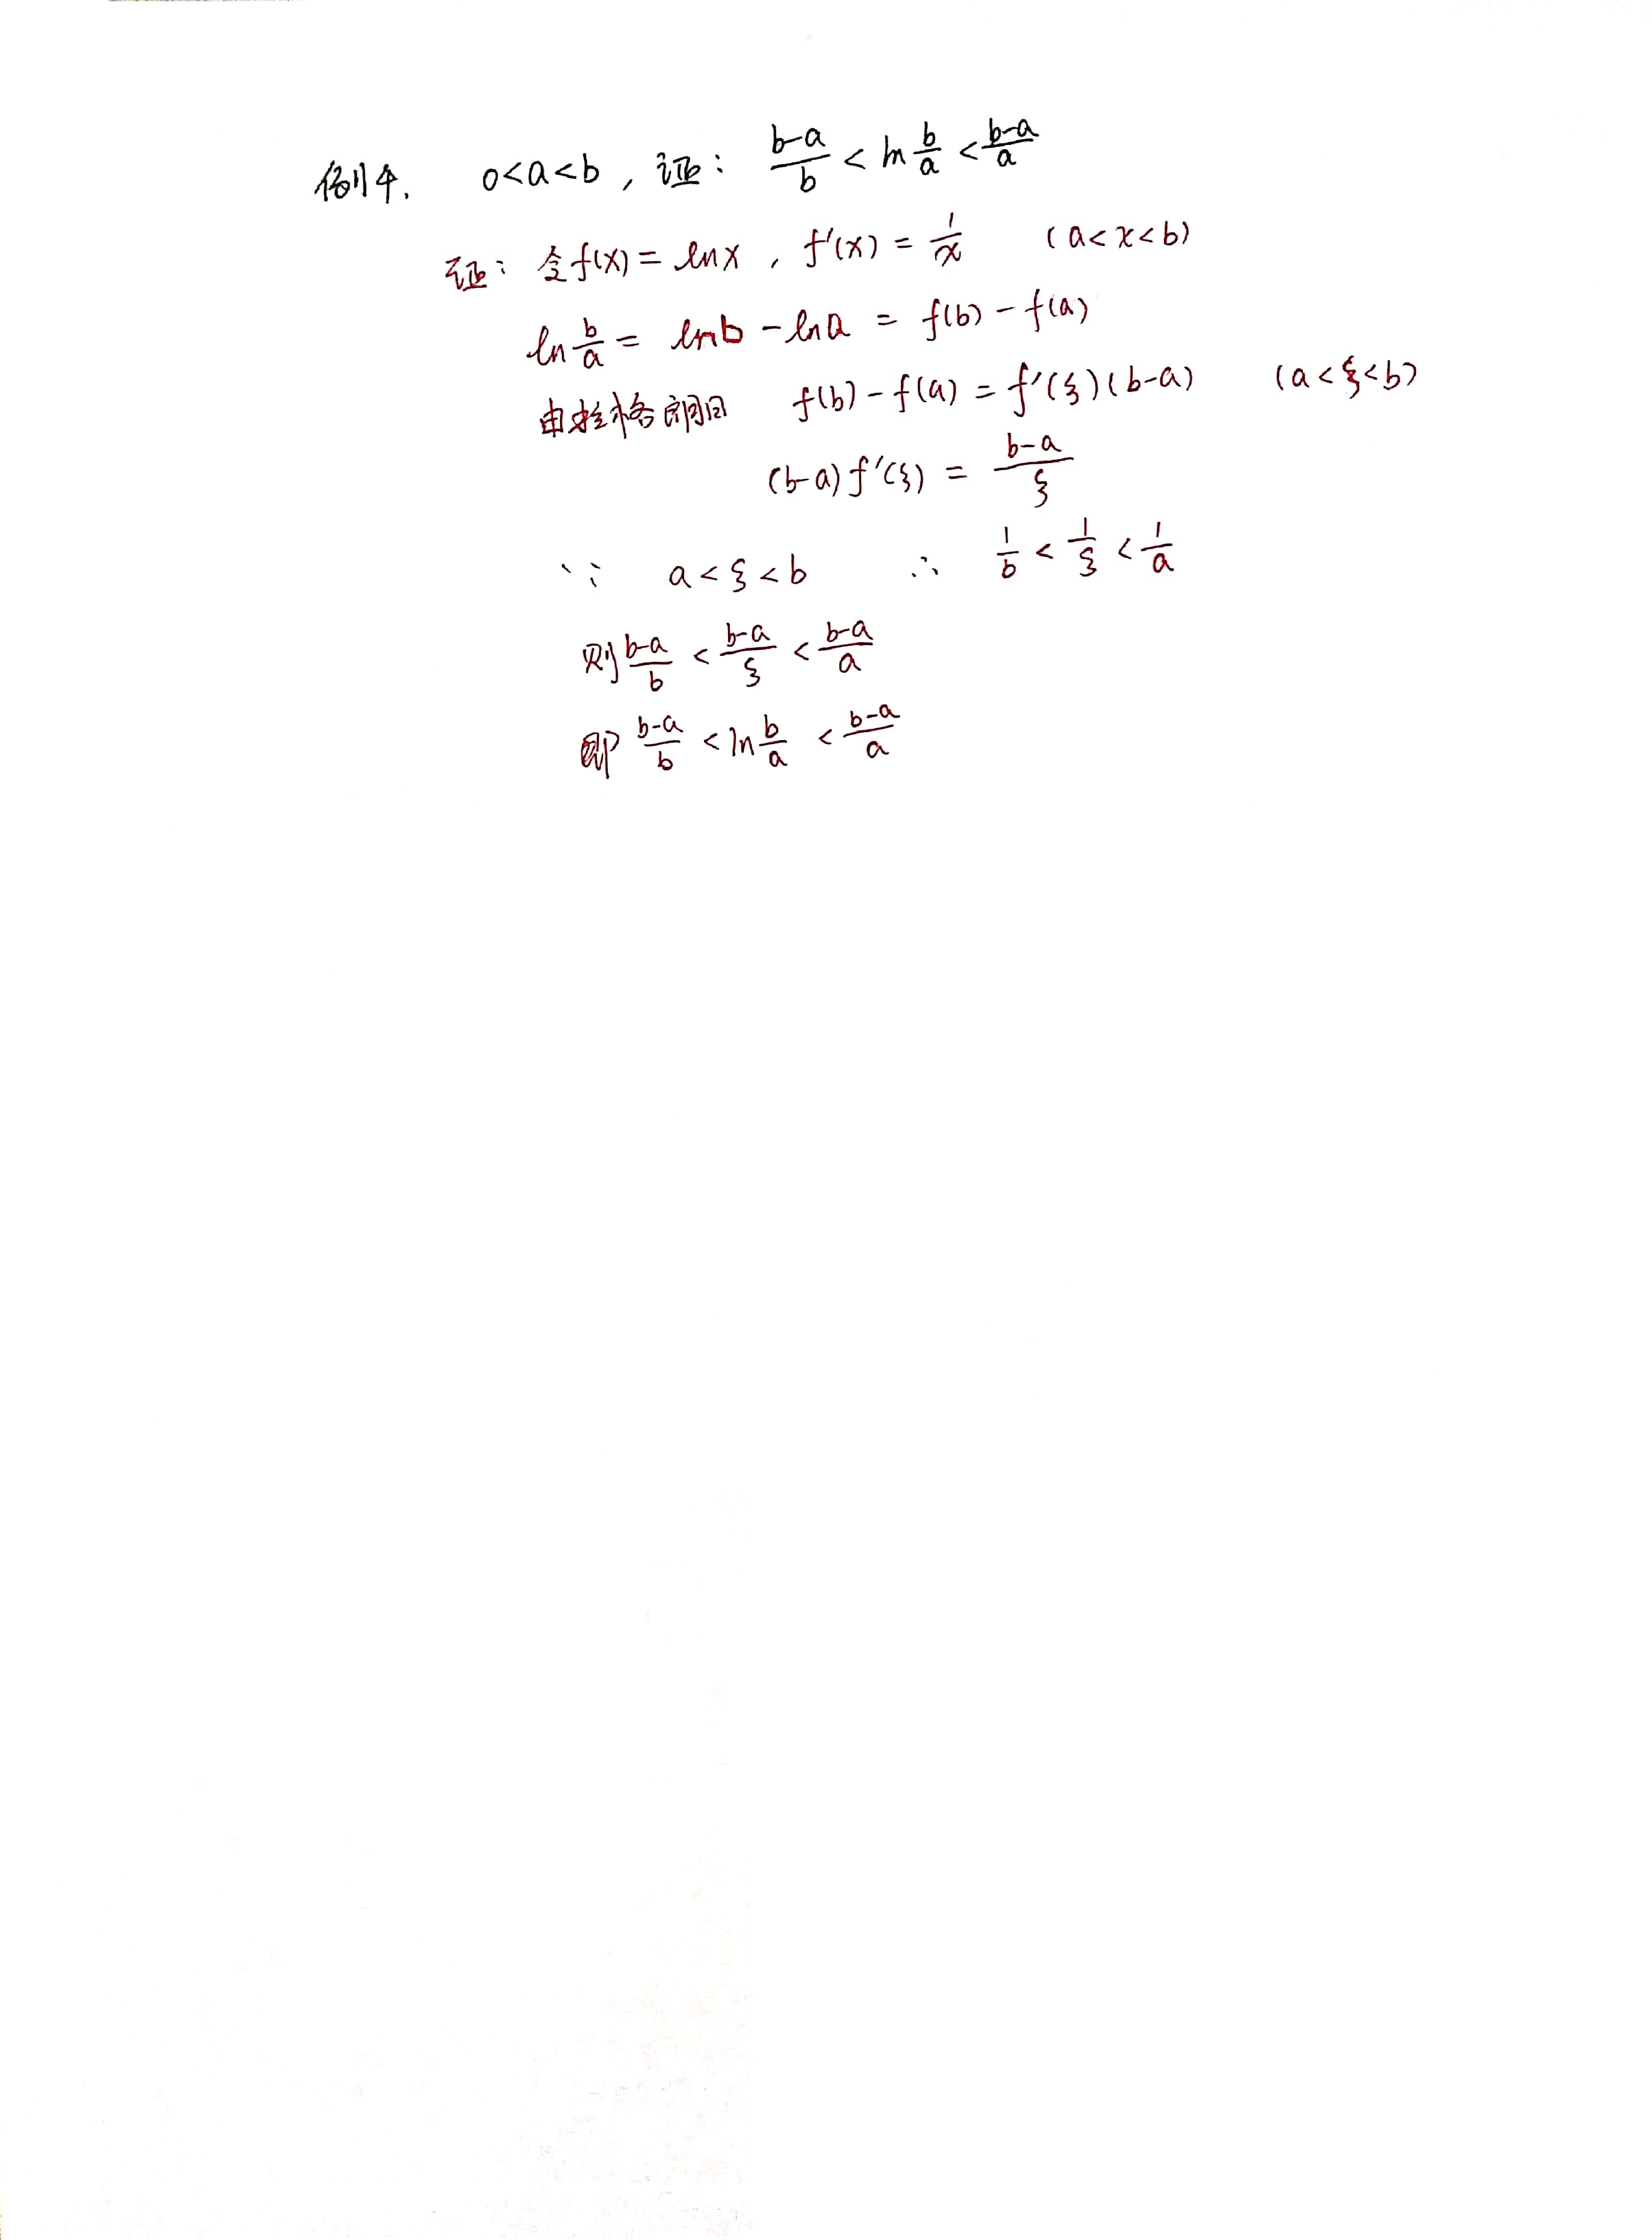 例4. 0<a<b, 证: (b-a)/b < ln b/a < (b-a)/a
证: 令f(x) = lnx, f'(x) = 1/x (a<x<b)
ln b/a = lnb - lna = f(b) - f(a)
由拉格朗日 f(b) - f(a) = f'(ξ)(b-a) (a<ξ<b)
(b-a)f'(ξ) = (b-a)/ξ
∵ a<ξ<b ∴ 1/b < 1/ξ < 1/a
则 (b-a)/b < (b-a)/ξ < (b-a)/a
即 (b-a)/b < ln b/a < (b-a)/a